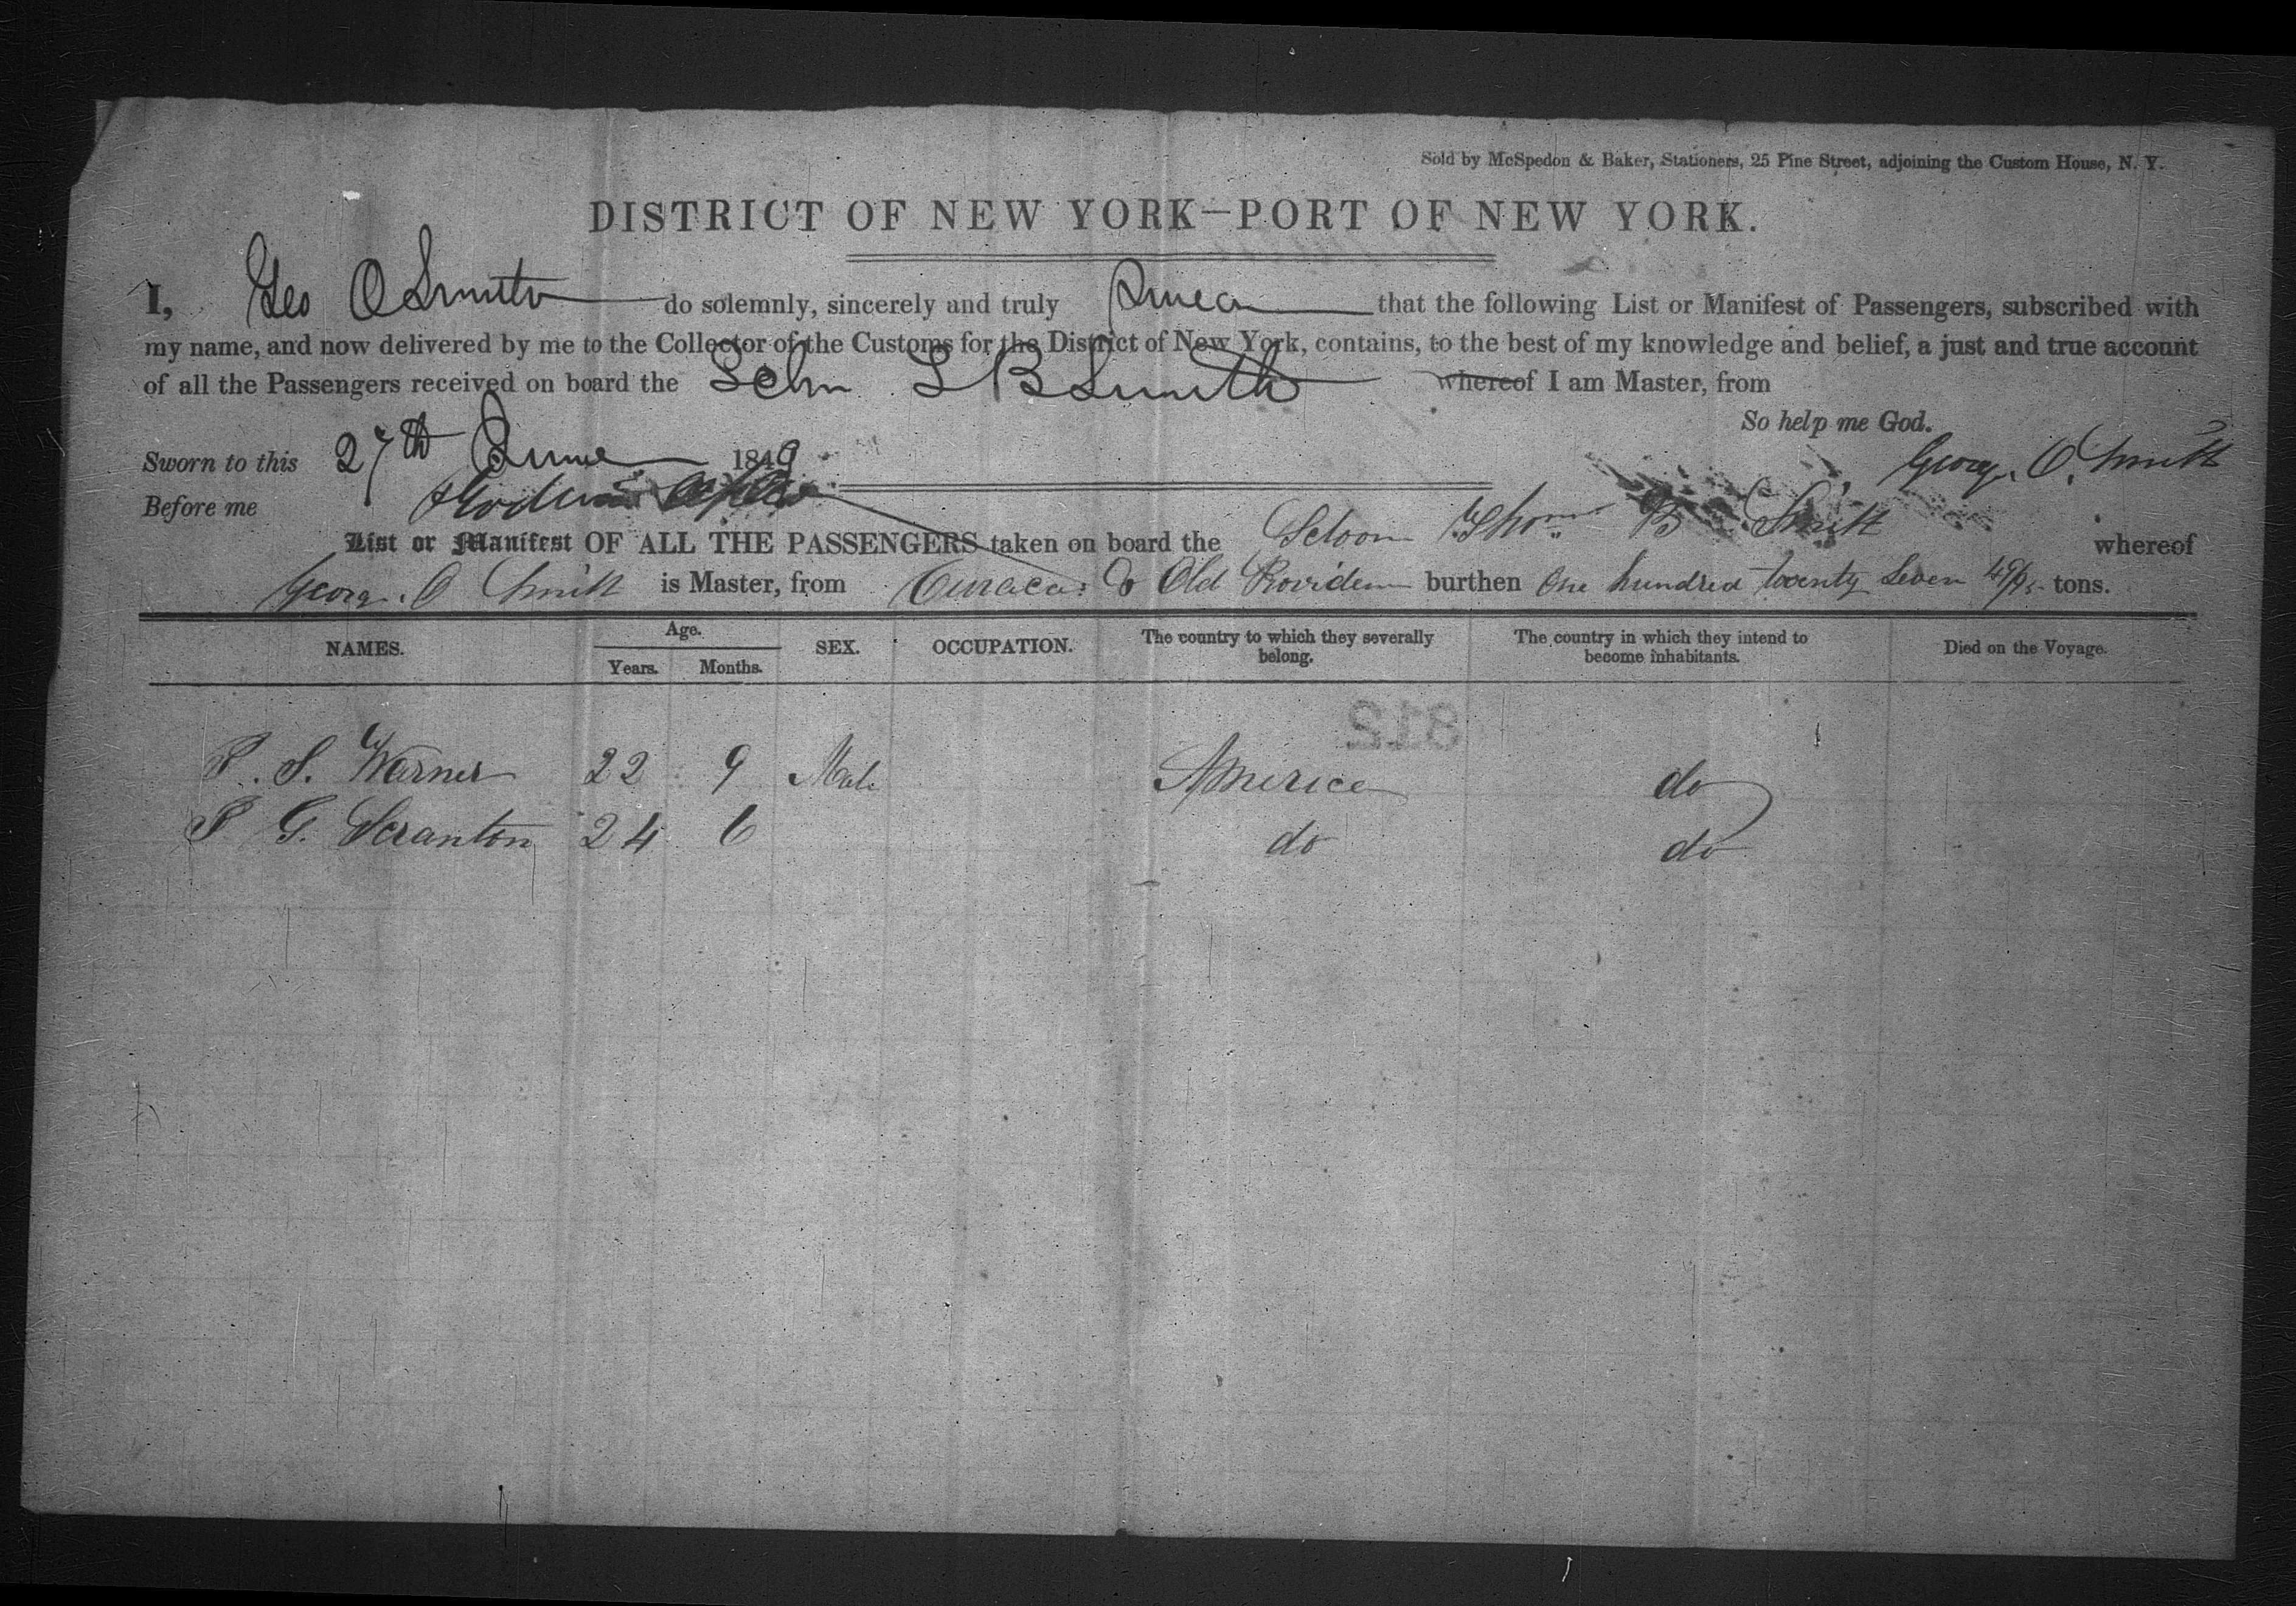 Sold by McSpedon & Baker, Stationers, 25 Pine Street, adjoining the Custom House, N. Y.
DISTRICT OF NEW YORK—PORT OF NEW YORK.
I, Geo O Smith do solemnly, sincerely and truly Swear that the following List or Manifest of Passengers, subscribed with
my name, and now delivered by me to the Collector of the Customs for the District of New York, contains, to the best of my knowledge and belief, a just and true account
of all the Passengers received on board the Schr B Smith whereof I am Master, from
So help me God.
Sworn to this 27th June 1849 George O. Smith
Before me
List or Manifest OF ALL THE PASSENGERS taken on board the Schoon Thos B Smith whereof
George O Smith is Master, from Curacao & Old Providen burthen One hundred twenty Seven tons.
NAMES. Age. SEX. OCCUPATION. The country to which they severally belong. The country in which they intend to become inhabitants. Died on the Voyage.
Years. Months.
812
P. S. Warner 22 9 Male America do
P G. Scranton 24 6 do do